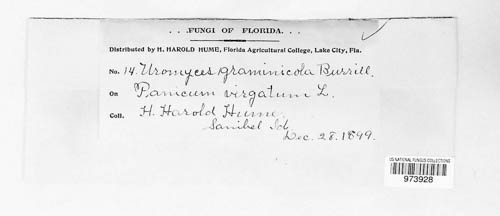 . . .FUNGI OF FLORIDA. . .
Distributed by H. HAROLD HUME, Florida Agricultural College, Lake City, Fla.
No. 14. Uromyces graminicola Burrill.
On Panicum virgatum L.
Coll. H. Harold Hume.
Sanibel Id
Dec. 28. 1899.
US NATIONAL FUNGUS COLLECTIONS
973928